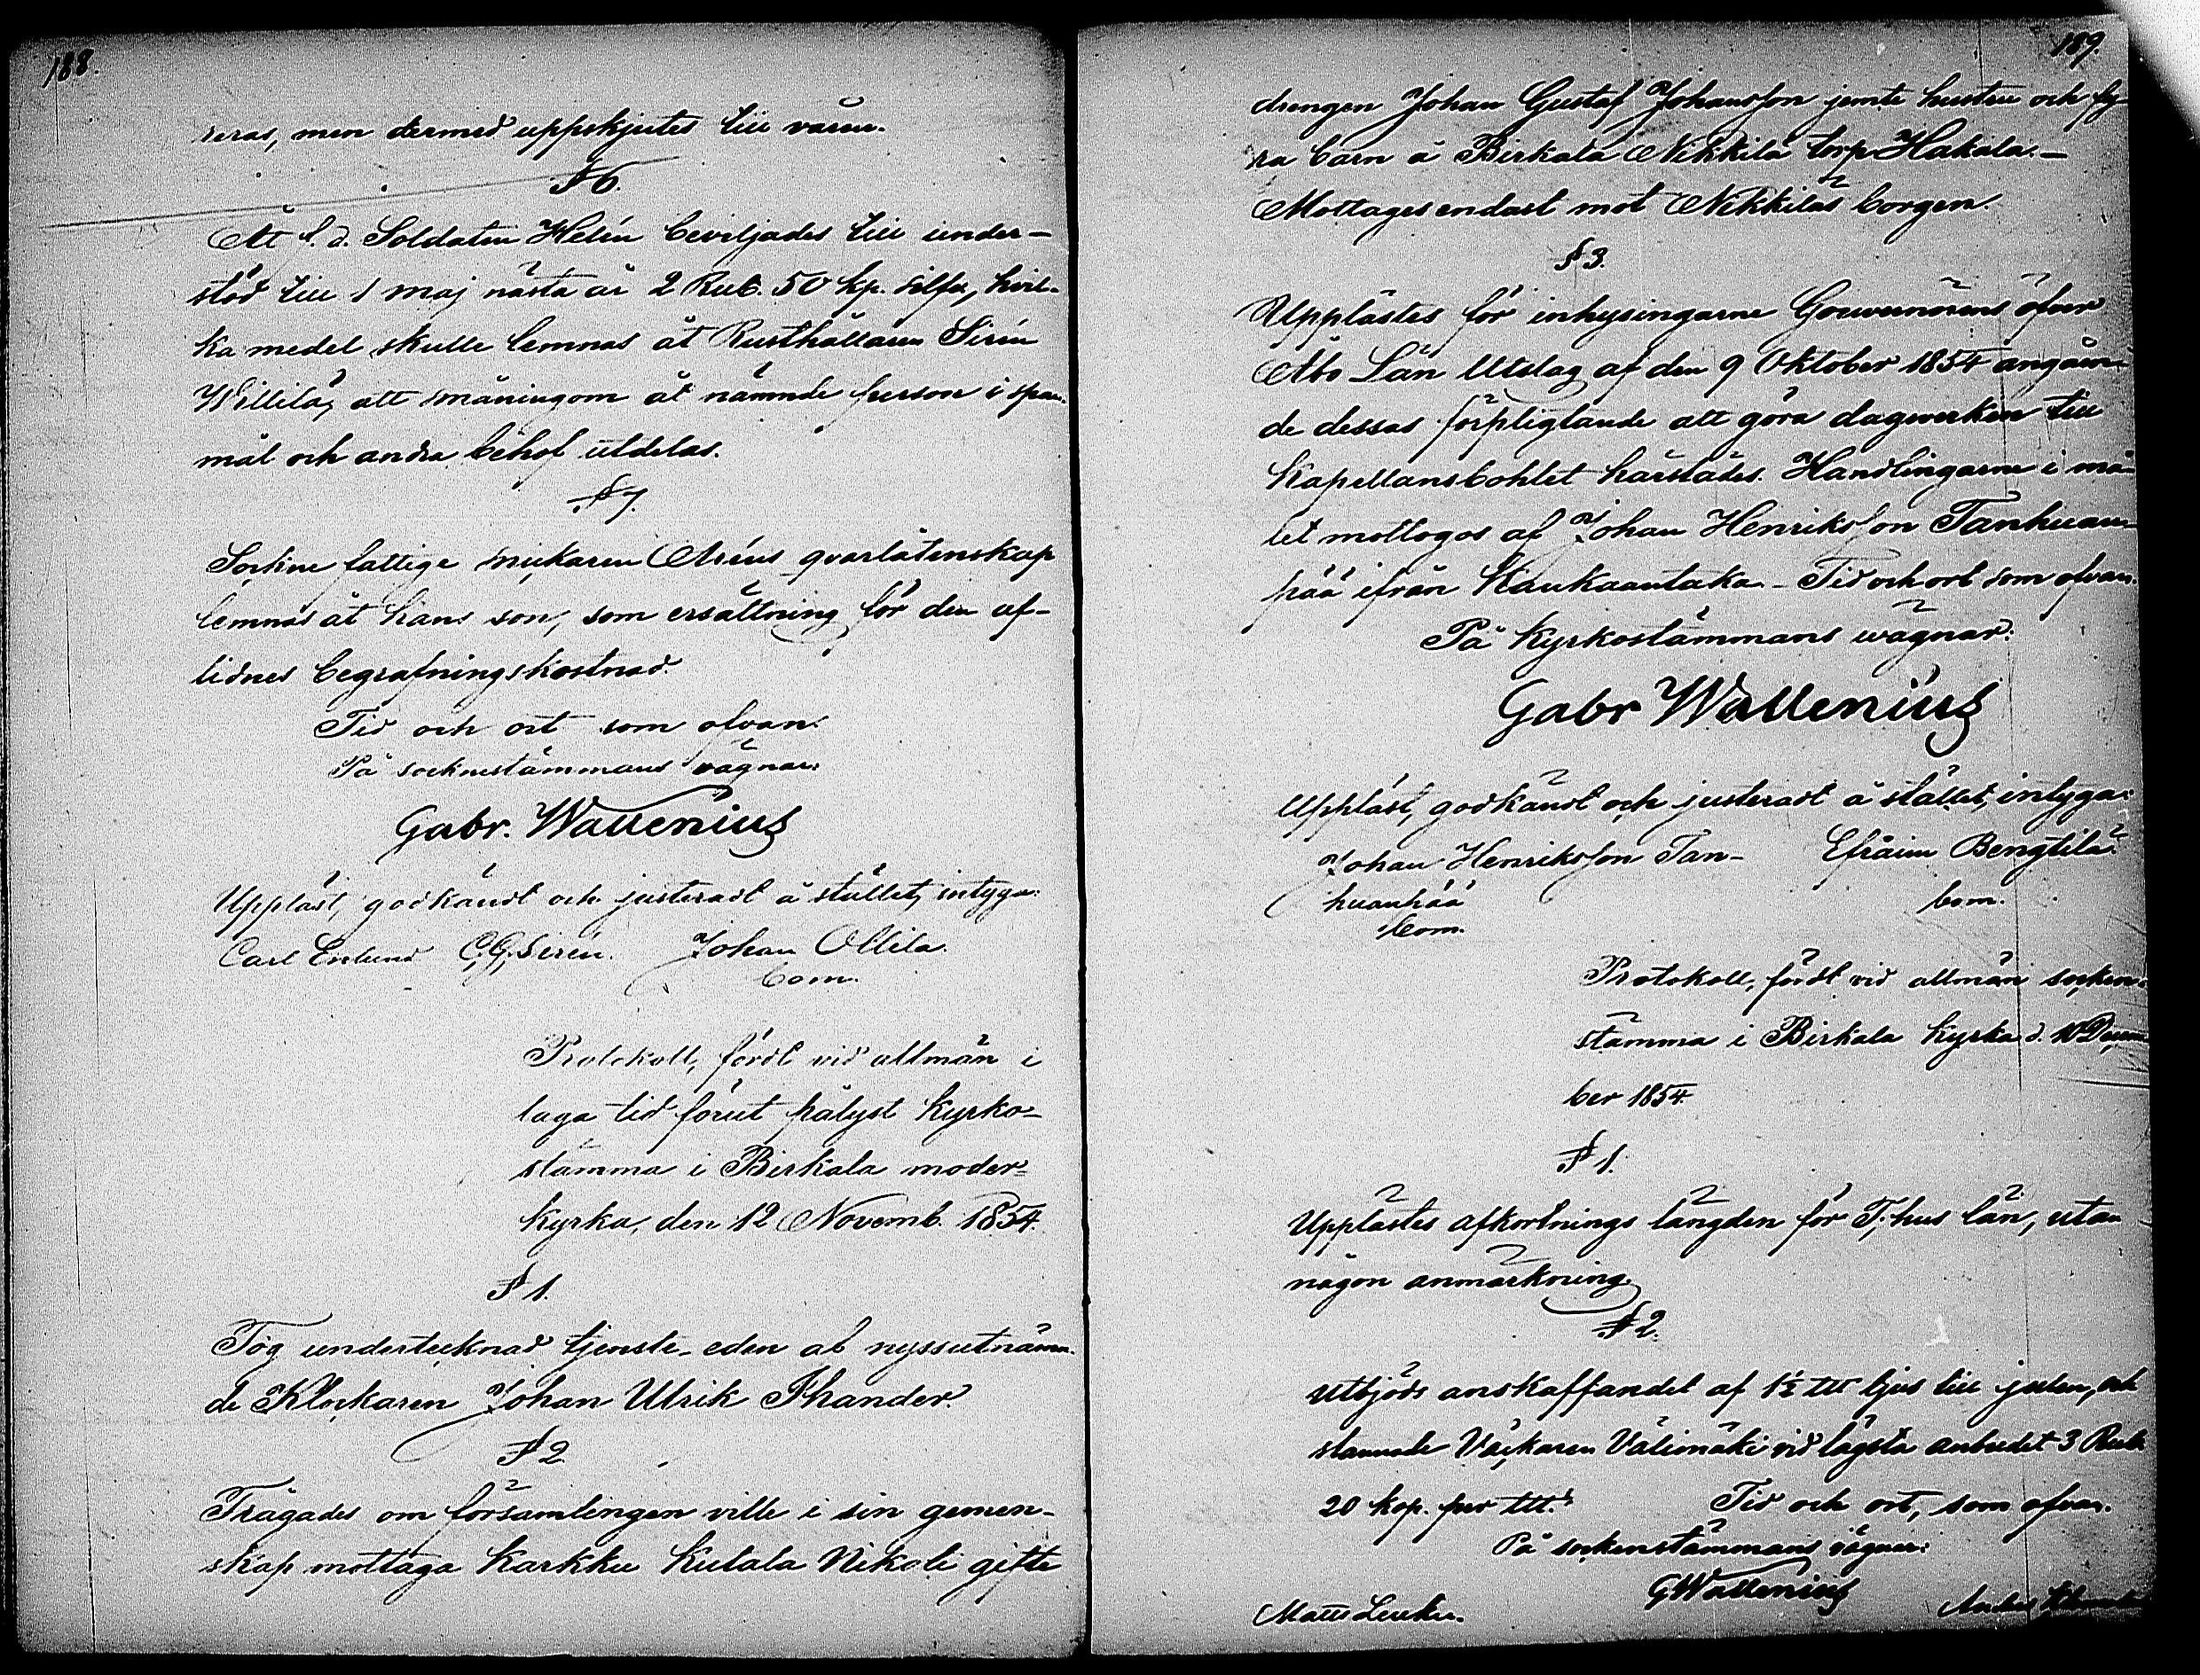 188.
reras, men dermed uppskjutes till våren.
§ 6.
Åt f. d. Soldaten Helin beviljades till under-
stöd till 1 maj nästa år 2 Rub. 50 kp. silfv, hvil-
ka medel skulle lemnas åt Rusthållaren Sirén
Willilä, att småningom åt nämnde person i span-
mål och andra behof utdelas.
§ 7.
Sockne fattige snickaren Aréns qvarlåtenskap
lemnas åt hans son, som ersättning för den af-
lidnes begrafningskostnad.
Tid och ort som ofvan.
På socknestämmans vägnar:
Gabr. Wallenius
Uppläst, godkändt och justeradt å stället, intyga:
Carl Enlund C. G. Sirén. Johan Ollila.
bom.
Protokoll, fördt vid allmän i
laga tid förut pålyst kyrko-
stämma i Birkala moder-
kyrka, den 12 Novemb. 1854.
§ 1.
Tog undertecknad tjenste-eden af nyssutnämn-
de Klockaren Johan Ulrik Thander.
§ 2
Frågades om församlingen ville i sin gemen-
skap mottaga Karkku Kulala Nikoli gifte
189.
drengen Johan Gustaf Johansson jemte hustru och fy-
ra barn å Birkala Nikkilä torp Hakala.-
Mottages endast mot Nikkiläs borgen.
§ 3.
Upplästes för inhysingarne Gouvernörens öfver
Åbo Län Utslag af den 9 Oktober 1854 angåen-
de dessas förpligtande att göra dagsverken till
Kapellansbohlet härstädes. Handlingarne i må-
let mottogos af Johan Henriksson Tanhuan-
pää ifrån Kaukaantaka.- Tid och ort som ofvan.
På Kyrkostämmans wägnar:
Gabr Wallenius
Uppläst, godkändt och justeradt å stället, intyga:
Johan Henriksson Tan- Efraim Bengtilä
huanpää bom.
bom.
Protokoll, fördt vid allmän socken-
stämma i Birkala Kyrka d. 10 Decem-
ber 1854.
§ 1.
Upplästes afkortnings längden för T. hus län, utan
någon anmärkning.
§ 2.
Utbjöds anskaffandet af 1½ ltt ljus till julen, och
stannade Väckaren Välimäki vid lägsta anbudet 3 Rub.
20 kop. per ltt. Tid och ort, som ofvan.
På sockenstämmans vägnar:
GWallenius
Matts Anders